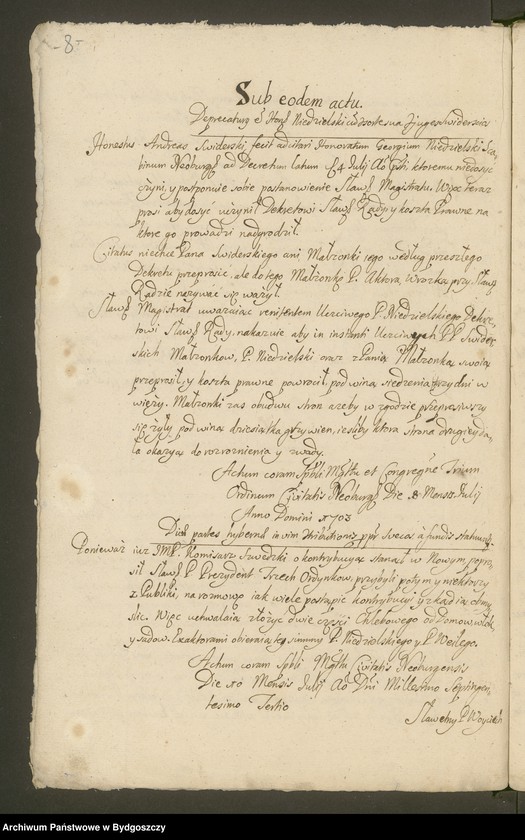 -8-
Sub eodem actu.
Deprecatur e Hon Niedzielski consorte sua conjuges Swiderscios
Honestus Andreas Swiderski fecit adcitari Honoratum Georgium Niedzielski Sca,
binum Neoburg ad Decretum latum 4 Julij Ao ktoremu niedosyc
czyni, y postponuie sobie postanowienie Slaw Magistratu. Więc teraz
prosi aby dosyć uczynił Dekretowi Sław Rady y koszta Prawne na
ktore go prowadzi nadgrodził.
Citatus niechce Pana Swiderskiego ani Małzonki jego według przeszłego
Dekretu przeprosic, ale do tego Małzonkę P. Aktora, przy Sławę
Radzie nazywać się ważył.
Sław Magistrat uwazaiąc renitentem Uczciwego P. Niedzielskiego Dekre,
towi Sław Rady, nakazuie aby in instanti Uczciwych PP Swider
skich Małzonkow, P. Niedzielski oraz z Panią Małzonką swoią
przeprosił, y koszta prawne powrocił, pod winą siedzenia trzy dni w
wieży. Małzonki zas obudwu stron azeby w zgodzie
się żyły pod winą dziesiątka grzywien, iesliby ktora strona drugiey da,
ła okazyą do roznienia y zwady.
Actum coram Spbli Mgttu et Congregne Trium
Ordinum Civitatis Neoburg Die 8 Mensis Julij
Anno Domini 1703
partes hybernae in vim ppr Svecos a fundis
Ponieważ iuż JMP. Komisarz Szwedzki o kontrybucyą stanął w Nowym, popro,
sił Sław P Prezydent Trzech Ordynkow, przybyli potym y niektorzy
z Publiki, na rozmowę iak wiele postąpić kontrybucyi y zkąd ią obmy,
slic. Więc uchwalaią złożyc dwie części Chlebowego od Domow, włok,
y sadow. Exaktorami obieraią tey summy P. Niedzielskiego y P. Weilego.
Actum coram Spbli Mgttu Civitatis Neoburgensis
Die 10 Mensis Julij Ao Dni Millesimo Septingen,
tesimo Tertio
Sławetny P Woyciech
Archiwum Państwowe w Bydgoszczy